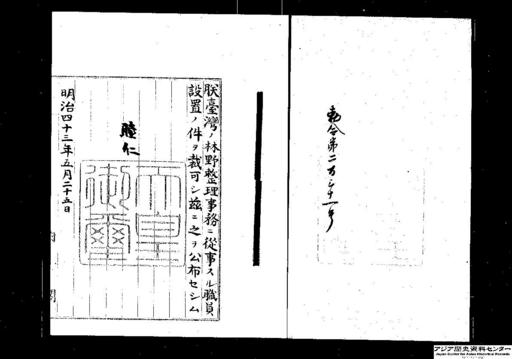 勅令第二百三十一号
朕臺灣ノ林野整理事務ニ從事スル職員
設置ノ件ヲ裁可シ茲ニ之ヲ公布セシム
睦仁
天皇御璽
明治四十三年五月二十五日
内閣
アジア歴史資料センター
Japan Center for Asian Historical Records